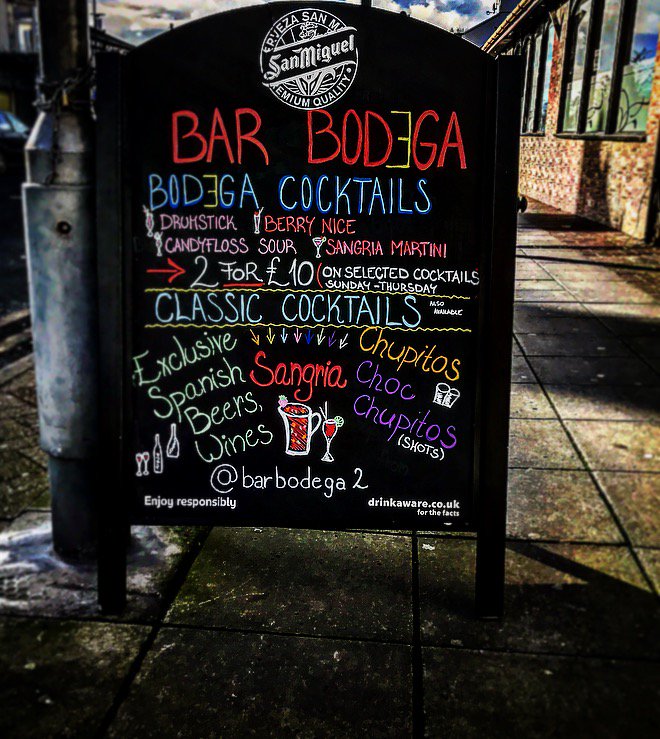 CERVEZA SAN M
San Miguel
EMIUM QUALITY
BAR BODEGA
BODEGA COCKTAILS
DRUMSTICK BERRY NICE
CANDYFLOSS SOUR SANGRIA MARTINI
2 FOR £10 (ON SELECTED COCKTAILS
SUNDAY - THURSDAY
CLASSIC COCKTAILS ALSO AVAILABLE
Exclusive
Spanish
Beers,
Wines
Sangria
Chupitos
Choc
Chupitos
(SHOTS)
@barbodega2
Enjoy responsibly
drinkaware.co.uk
for the facts